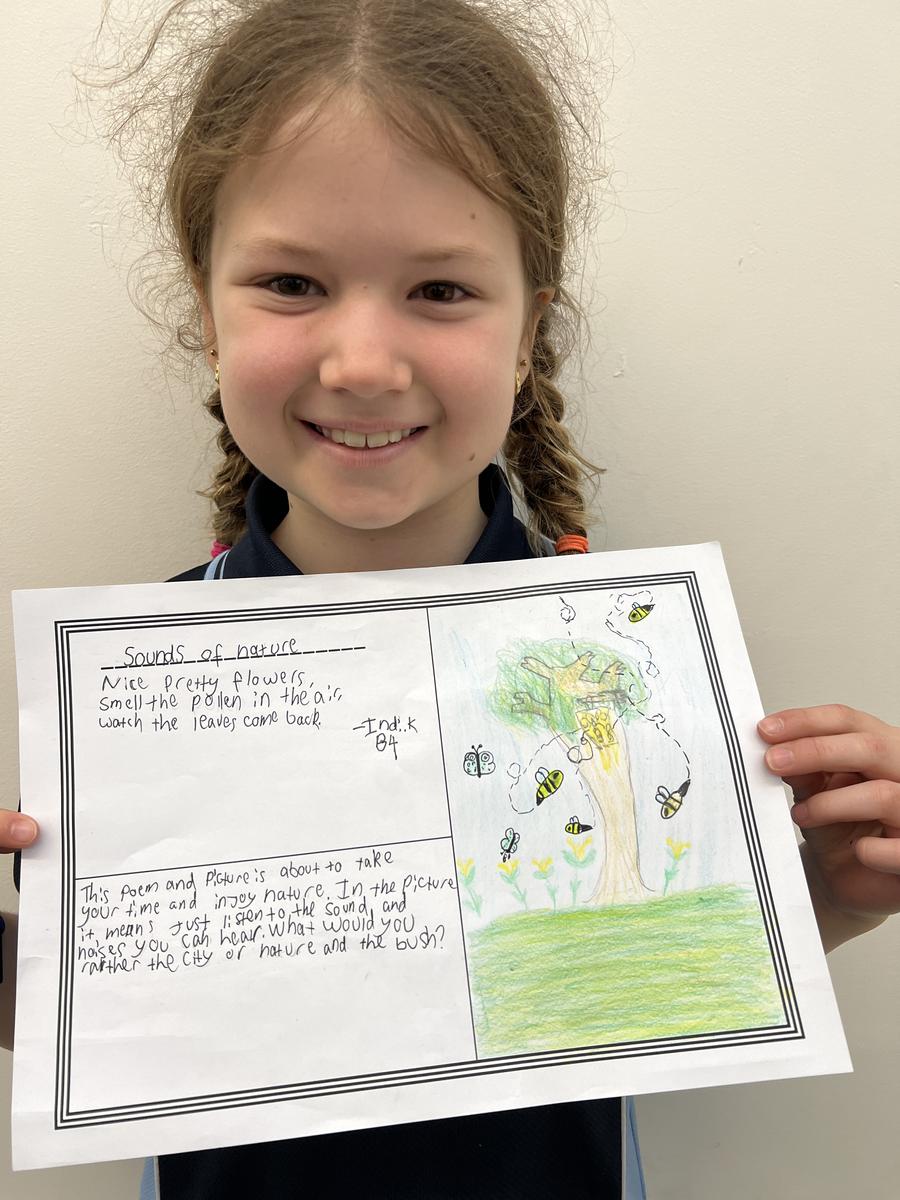 Sounds of nature
Nice Pretty flowers,
smell the pollen in the air,
watch the leaves come back.
-Indi.K
B4
This Poem and Picture is about to take
your time and injoy nature. In the Picture
it means Just listen to the sound and
noises you can hear. What would you
rarther the City or nature and the bush?